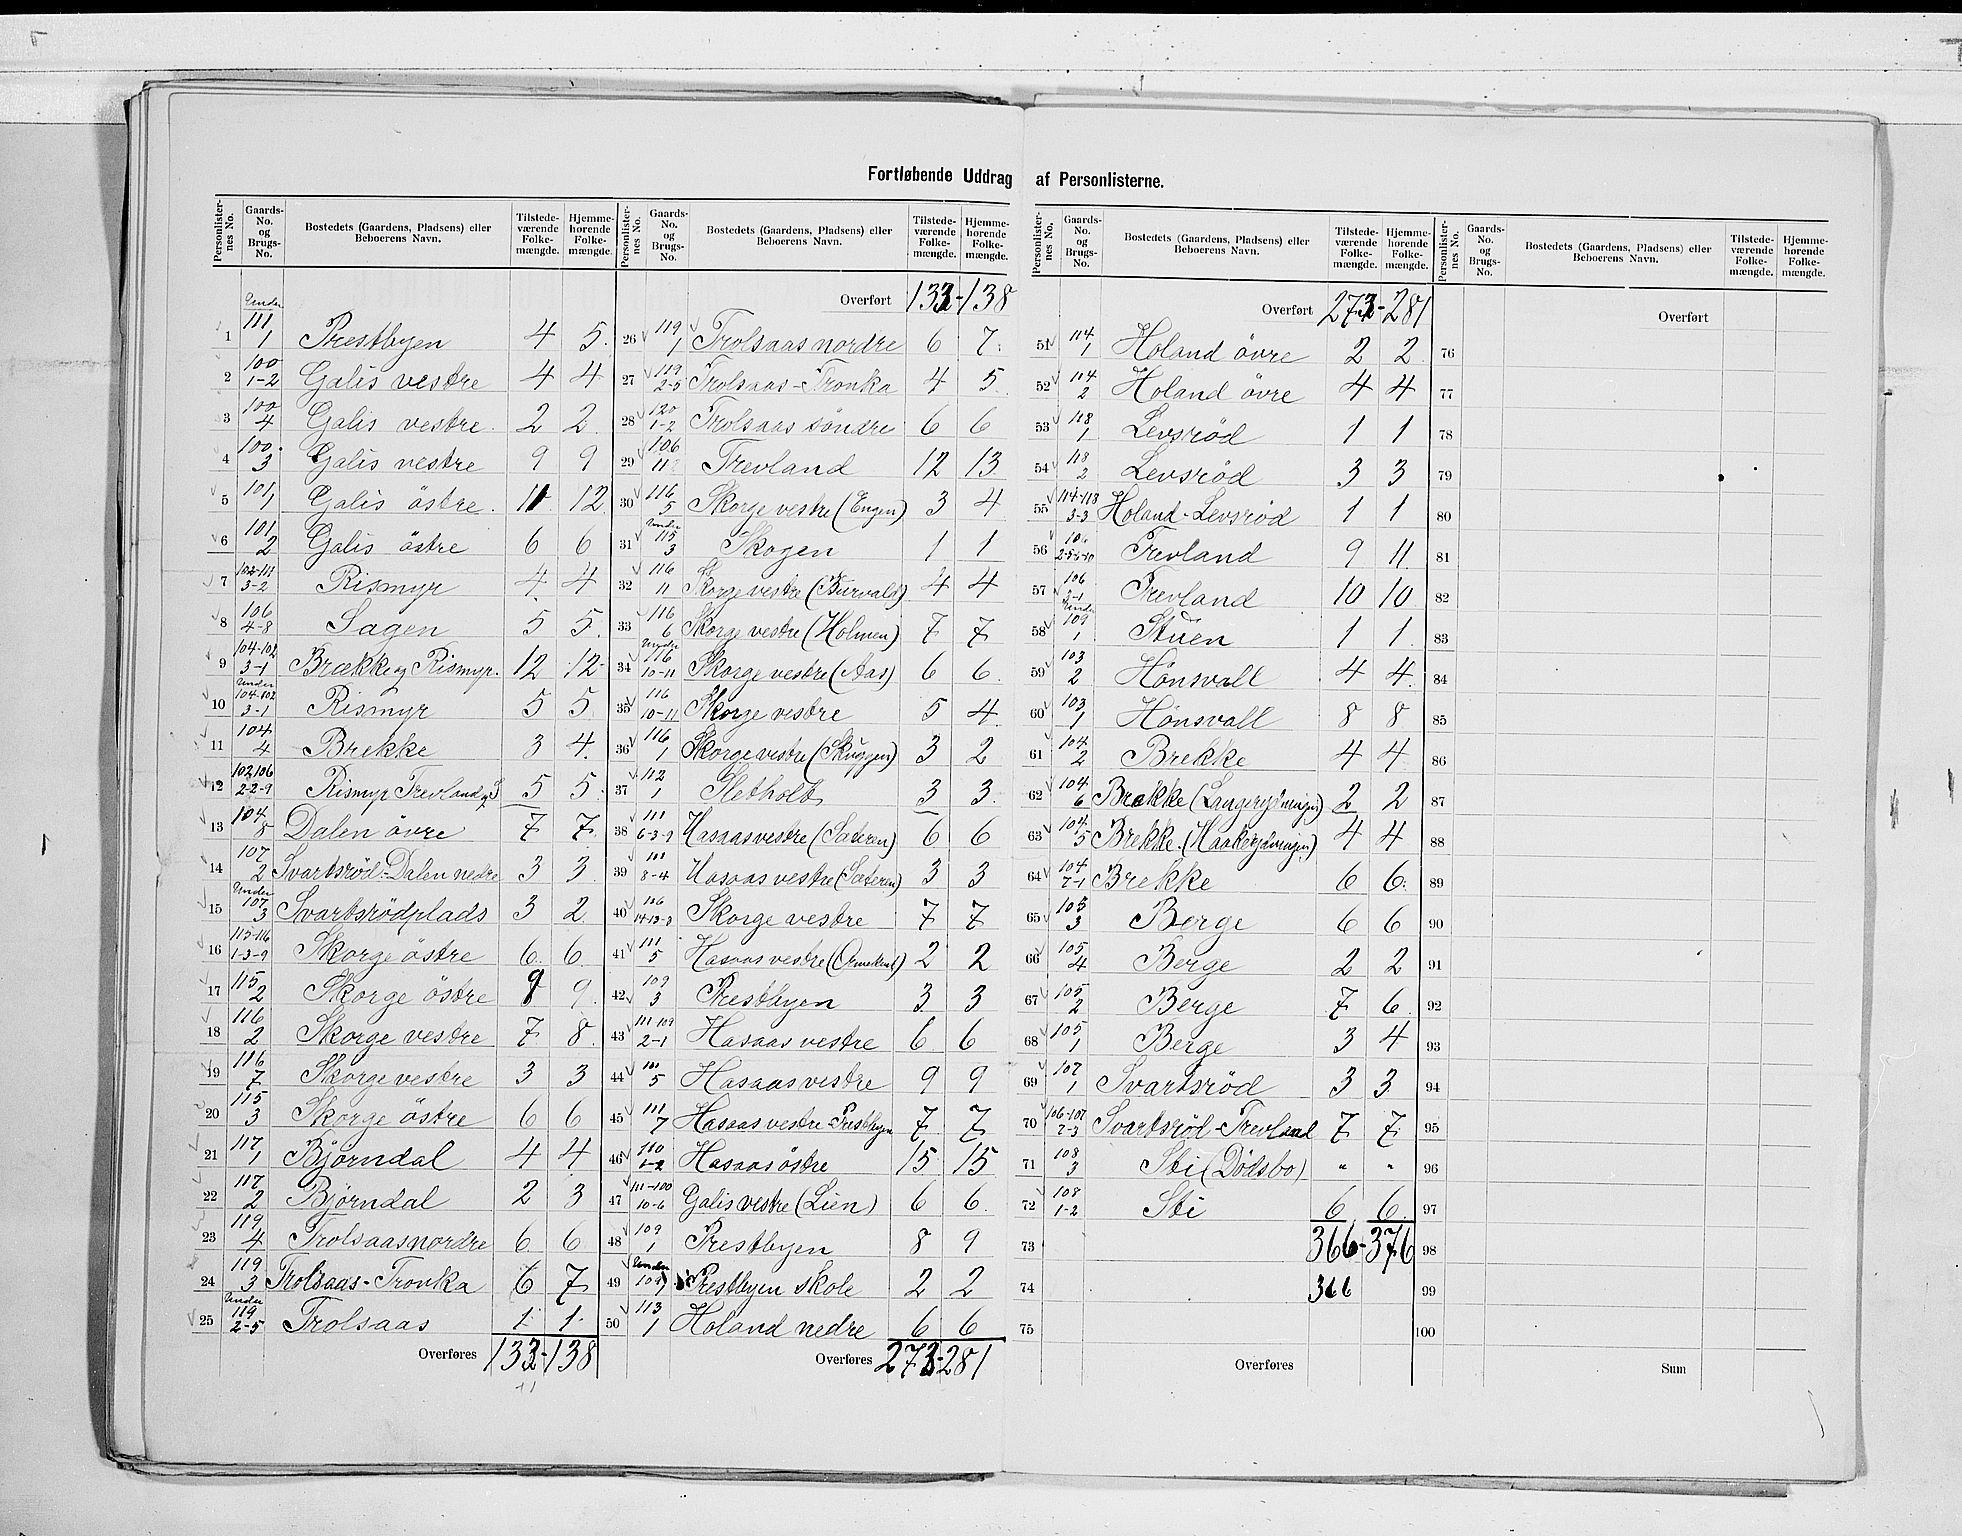 Fortløbende Uddrag af Personlisterne.
Personlisternes No. | Gaards-No. og Brugs-No. | Bostedets (Gaardens, Pladsens) eller Beboerens Navn. | Tilstedeværende Folkemængde. | Hjemmehørende Folkemængde.
1 Under 111/1 Prestbyen 4 5
2 100/1-2 Galis vestre 4 4
3 100/4 Galis vestre 2 2
4 100/3 Galis vestre 9 9
5 101/1 Galis östre 11 12
6 101/2 Galis östre 6 6
7 102-111/3-2 Rismyr 4 4
8 106/4-8 Sagen 5 5
9 104-102/3-1 Brække og Rismyr 12 12
10 Under 104-102/3-1 Rismyr 5 5
11 104/4 Brekke 3 4
12 102 106/2-2-9 Rismyr Trevland 5 5
13 104/8 Dalen övre 7 7
14 107/2 Svartsröd-Dalen nedre 3 3
15 Under 107/3 Svartsrödplads 3 2
16 115-116/1-3-9 Skorge östre 6 6
17 115/2 Skorge östre 9 9
18 116/2 Skorge vestre 7 8
19 116/7 Skorge vestre 3 3
20 115/3 Skorge östre 6 6
21 117/1 Björndal 4 4
22 117/2 Björndal 2 3
23 119/4 Trolsaas nordre 6 6
24 119/3 Trolsaas-Tronka 6 7
25 Under 119/2-5 Trolsaas 1 1
Overføres 133-138
Overført 133-138
26 119/1 Trolsaas nordre 6 7
27 119/2-5 Trolsaas-Tronka 4 5
28 120/1-2 Trolsaas söndre 6 6
29 106/11 Trevland 12 13
30 116/5 Skorge vestre (Engen) 3 4
31 Under 115/3 Skogen 1 1
32 116/11 Skorge vestre (Burvald) 4 4
33 116/6 Skorge vestre (Holmen) 7 7
34 Under 116/10-11 Skorge vestre (Aas) 6 6
35 116/10-11 Skorge vestre 5 4
36 116/1 Skorge vestre (Skuggen) 3 2
37 112/1 Sletholt 3 3
38 111/6-3-9 Hasaas vestre (Sæteren) 6 6
39 111/8-4 Hasaas vestre (Sæteren) 3 3
40 Skorge vestre 7 7
41 111/5 Hasaas vestre 2 2
42 109/3 Prestbyen 3 3
43 111 109/2-1 Hasaas vestre 6 6
44 111/5 Hasaas vestre 9 9
45 111/7 Hasaas vestre-Prestbyen 7 7
46 110/1-2 Hasaas östre 15 15
47 111-100/10-6 Galis vestre (Lien) 6 6
48 109/1 Prestbyen 8 9
49 Under 109/1 Prestbyen skole 2 2
50 113/1 Holand nedre 6 6
Overføres 273-281
Overført 273-281
51 114/1 Holand övre 2 2
52 114/2 Holand övre 4 4
53 118/1 Levsröd 1 1
54 118/2 Levsröd 3 3
55 114-118/3-3 Holand-Levsröd 1 1
56 Trevland 9 11
57 106/3-1 Trevland 10 10
58 Under 109/1 Stuen 1 1
59 103/2 Hönsvall 4 4
60 103/1 Hönsvall 8 8
61 104/2 Brekke 4 4
62 104/6 Brekke (Langerydningen) 2 2
63 104/5 Brekke (Haakerydningen) 4 4
64 104/7-1 Brekke 6 6
65 105/3 Berge 6 6
66 105/4 Berge 2 2
67 105/2 Berge 7 6
68 105/1 Berge 3 4
69 107/1 Svartsröd 3 3
70 106-107/7-3 Svartsröd-Trevland 7 7
71 108/3 Sti (Dödsbo) " "
72 108/1-2 Sti 6 6
73 366-376
74 366
75
Overføres
Overført
76
77
78
79
80
81
82
83
84
85
86
87
88
89
90
91
92
93
94
95
96
97
98
99
100
Sum